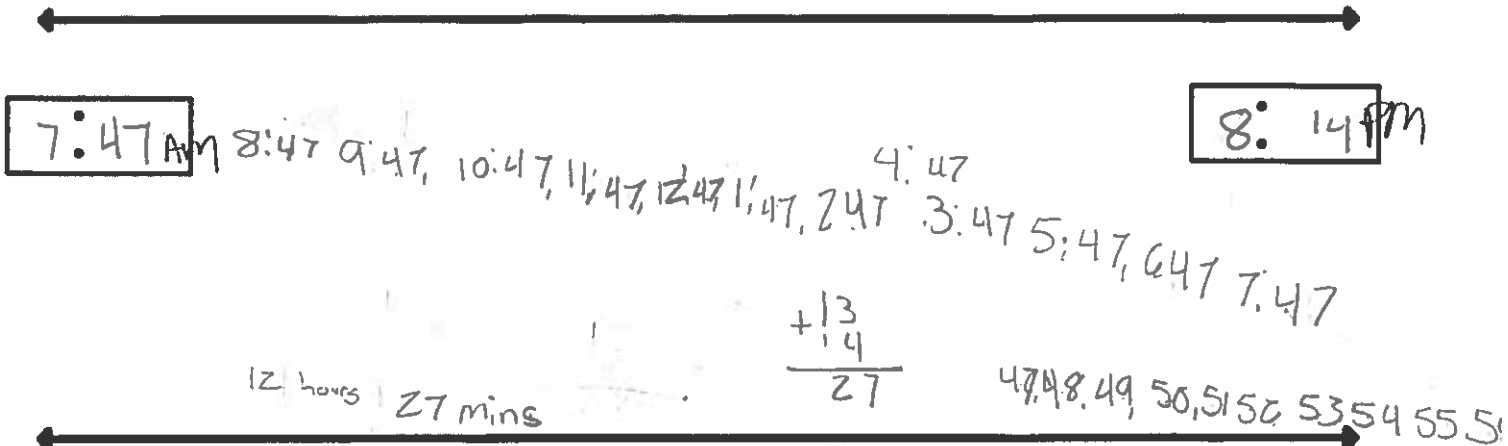 7:47 AM 8:47 9:47, 10:47, 11:47, 12:47, 1:47, 2:47 3:47 5:47, 6:47 7:47
4:47
8: 14 PM
+13
14
27
12 hours 27 mins
47, 48, 49, 50, 51 52 53 54 55